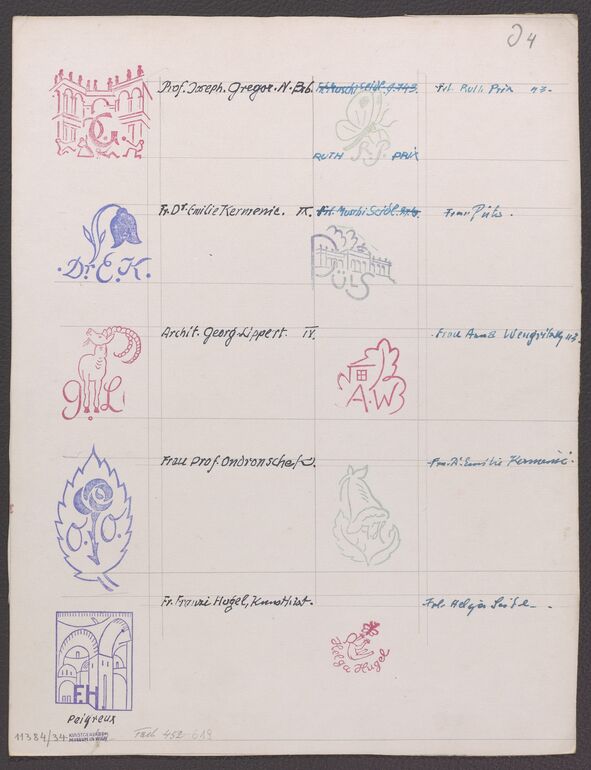 J4
Prof. Joseph. Gregor. N. Brb.
Frl. Ruth Prix 43.
G.
R.P.
RUTH PRIX
Fr. Dr. Emilie Kermenic. IX.
Frau Püls.
Dr. E. K.
PÜLS
Archit. Georg Lippert. IV.
Frau Anna
43
g. L
A. W
Frau Prof. Ondronschek.
Fr. Dr. Emilie Kermenic.
O. O.
Fr. Franzi Hugel, Kunsthist.
Frl. Helga
Helga Hugel
F.H.
Peigreux
11384/34.
Tech 452-619